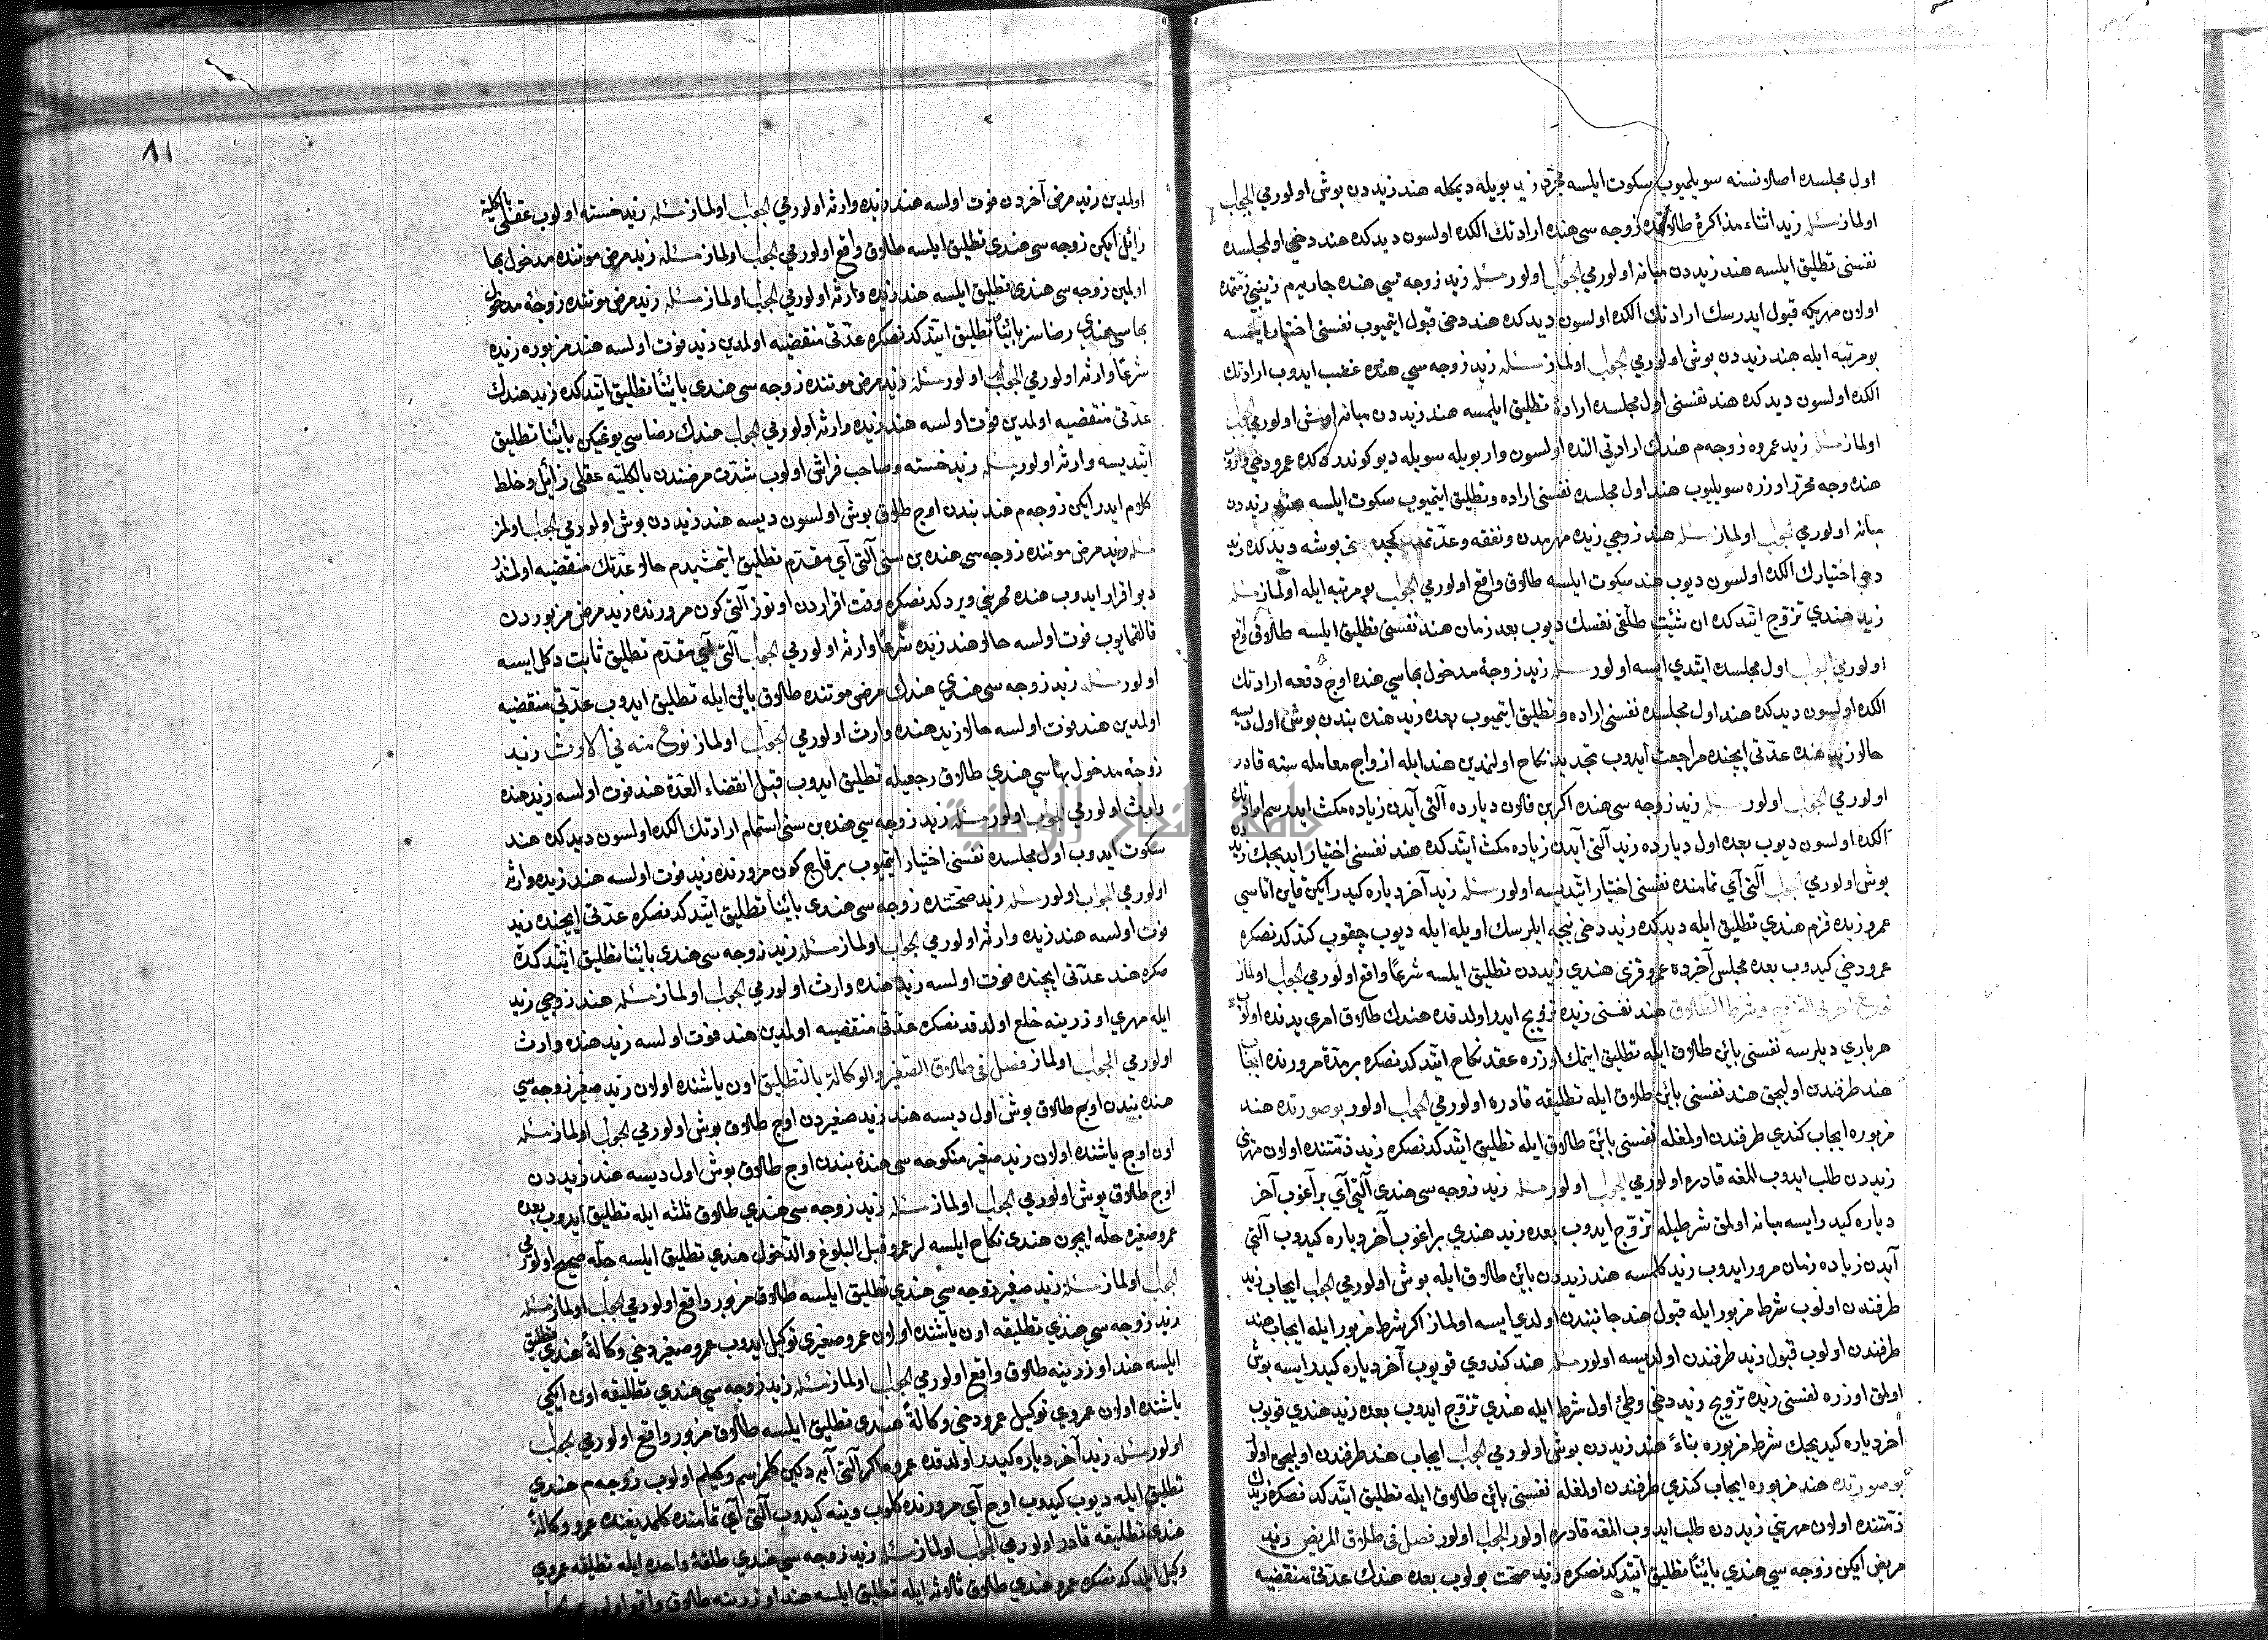 اول مجلسده اصلا نسنه سويلميوب سكوت ايلسه مجرد زيد بويله ديمكله هند زيددن بوش اولورمي الجواب
اولماز مسئله زيد اثناء مذاكرۀ طلاقده زوجه سي هنده ارادتك الكده اولسون ديدكده هند دخي اول مجلسده
نفسني تطليق ايلسه هند زيددن مبانه اولورمي الجواب اولور مسئله زيد زوجه سي هنده جاريه م زينبي ذمتمده
اولان مهريكه قبول ايدرسك ارادتك الكده اولسون ديدكده هند دخي قبول ايتميوب نفسني اختيار ايلمسه
بو مرتبه ايله هند زيددن بوش اولورمي الجواب اولماز مسئله زيد زوجه سي هنده غضب ايدوب ارادتك
الكده اولسون ديدكده هند نفسني اول مجلسده اراده تطليق ايلمسه هند زيددن مبانه اولورمي الجواب
اولماز مسئله زيد عمروه زوجه م هندك ارادتي النده اولسون وار بويله سويله ديو كوندردكده عمرو دخي واروب
هنده وجه محرر اوزره سويليوب هند اول مجلسده نفسني اراده و تطليق ايتميوب سكوت ايلسه هند زيددن
مبانه اولورمي الجواب اولماز مسئله هند زوجي زيده مهرمدن و نفقه وعدتمدن كچدم بني بوشه ديدكده زيد
دخي اختيارك الكده اولسون ديوب هند سكوت ايلسه طلاق واقع اولورمي الجواب بو مرتبه ايله اولماز مسئله
زيد هندي تزوج ايتدكده ان شئت طلقي نفسك ديوب بعد زمان هند نفسني تطليق ايلسه طلاق واقع
اولورمي الجواب اول مجلسده ايتدي ايسه اولور مسئله زيد زوجۀ مدخول بهاسي هنده اوچ دفعه ارادتك
الكده اولسون ديدكده هند اول مجلسده نفسني اراده و تطليق ايتميوب بعده زيد هنده بندن بوش اول ديسه
حالا زيد هنده عدتي ايچنده مراجعت ايدوب تجديد نكاح اولنمدين هند ايله ازواج معامله سنه قادر
اولورمي الجواب اولور مسئله زيد زوجه سي هنده اكر بن فلان ديارده آلتي آيدن زياده مكث ايدرسم ارادتك
الكده اولسون ديوب بعده اول ديارده زيد آلتي آيدن زياده مكث ايتدكده هند نفسني اختيار ايديجك زيددن
بوش اولورمي الجواب آلتي آي تمامنده نفسني اختيار ايتديسه اولور مسئله زيد آخر دياره كيدر ايكن قاين اتاسي
عمرو زيده قزم هندي تطليق ايله ديدكده زيد دخي نيجه ايلرسك اويله ايله ديوب چقوب كتدكدنصكره
عمرو دخي كيدوب بعده مجلس آخرده عمرو قزي هندي زيددن تطليق ايلسه شرعا واقع اولورمي الجواب اولماز
هند نفسني زيده تزويج ايدر اولدقده هندك طلاق امري يدنده اولا
هر باري ديلرسه نفسني بائن طلاق ايله تطليق ايتمك اوزره عقد نكاح ايتدكدنصكره بر مدة مرورنده ايجاب
هند طرفندن اوليجق هند نفسني بائن طلاق ايله تطليقه قادره اولورمي الجواب اولور بو صورتده هند
مزبوره ايجاب كندي طرفندن اولمغله نفسني بائن طلاق ايله تطليق ايتدكدنصكره زيد ذمتنده اولان مهرني
زيددن طلب ايدوب المغه قادره اولورمي الجواب اولور مسئله زيد زوجه سي هندي آلتي آي براغوب آخر
دياره كيدر ايسه مبانه اولمق شرطيله تزوج ايدوب بعده زيد هندي براغوب آخر دياره كيدوب آلتي
آيدن زياده زمان مرور ايدوب زيد كلمسه هند زيددن بائن طلاق ايله بوش اولورمي الجواب ايجاب زيد
طرفندن اولوب شرط مزبور ايله قبول هند جانبندن اولدي ايسه اولماز اكر شرط مزبور ايله ايجاب هند
طرفندن اولوب قبول زيد طرفندن اولديسه اولور مسئله هند كندوي قويوب آخر دياره كيدر ايسه بوش
اولمق اوزره نفسني زيده تزويج زيد دخي وطئ اول شرط ايله هندي تزوج ايدوب بعده زيد هندي قويوب
آخر دياره كيديجك شرط مزبوره بناءً هند زيددن بوش اولورمي الجواب ايجاب هند طرفندن اوليجق اولور
بو صورتده هند مزبوره ايجاب كندي طرفندن اولمغله نفسني بائن طلاق ايله تطليق ايتدكدنصكره زيدك
ذمتنده اولان مهرني زيددن طلب ايدوب المغه قادره اولور الجواب اولور فصل في طلاق المريض زيد
مريض ايكن زوجه سي هندي بائنًا تطليق ايتدكدنصكره زيد صحت بولوب بعده هندك عدتي منقضيه
٨١
اولمدين زيد مرض آخردن فوت اولسه هند زيده وارثه اولورمي الجواب اولماز مسئله زيد خسته اولوب عقلي بالكليه
زائل ايكن زوجه سي هندي تطليق ايلسه طلاق واقع اولورمي الجواب اولماز مسئله زيد مرض موتنده مدخول بها
اولمين زوجه سي هندي تطليق ايلسه هند زيده وارثه اولورمي الجواب اولماز مسئله زيد مرض موتنده زوجۀ مدخول
بهاسي هندي رضاسز بائنًا تطليق ايتدكدنصكره عدتي منقضيه اولمدين زيد فوت اولسه هند مزبوره زيده
شرعًا وارثه اولورمي الجواب اولور مسئله زيد مرض موتنده زوجه سي هندي بائنًا تطليق ايتدكده زيد هندك
عدتي منقضيه اولمدين فوت اولسه هند زيده وارثه اولورمي الجواب هندك رضاسي يوغيكن بائنًا تطليق
ايتديسه وارثه اولور مسئله زيد خسته وصاحب فراش اولوب شدت مرضندن بالكليه عقلي زائل وخلط
كلام ايدر ايكن زوجه م هند بندن اوچ طلاق بوش اولسون ديسه هند زيددن بوش اولورمي الجواب اولمز
مسئله زيد مرض موتنده زوجه سي هنده بن سني آلتي آي مقدم تطليق ايتمشيدم حالا عدتك منقضيه اولمشدر
ديو اقرار ايدوب هنده مهرني ويردكدنصكره وقت اقراردن اوتوز آلتي كون مرورنده زيد مرض مزبوردن
قالقمايوب فوت اولسه حالا هند زيده شرعًا وارثه اولورمي الجواب آلتي آي مقدم تطليق ثابت دكل ايسه
اولور مسئله زيد زوجه سي هندي هندك مرض موتنده طلاق بائن ايله تطليق ايدوب عدتي منقضيه
اولمدين هند فوت اولسه حالا زيد هنده وارث اولورمي الجواب اولماز نوع منه في الارث زيد
زوجۀ مدخول بهاسي هندي طلاق رجعيله تطليق ايدوب قبل انقضاء العدة هند فوت اولسه زيد هنده
وارث اولورمي الجواب اولور مسئله زيد زوجه سي هنده بن سني استمام ارادتك الكده اولسون ديدكده هند
سكوت ايدوب اول مجلسده نفسني اختيار ايتميوب بر قاچ كون مرورنده زيد فوت اولسه هند زيده وارثه
اولورمي الجواب اولور مسئله زيد صحتنده زوجه سي هندي بائنًا تطليق ايتدكدنصكره عدتي ايچنده زيد
فوت اولسه هند زيده وارثه اولورمي الجواب اولماز مسئله زيد زوجه سي هندي بائنًا تطليق ايتدكدن
صكره هند عدتي ايچنده فوت اولسه زيد هنده وارث اولورمي الجواب اولماز مسئله هند زوجي زيد
ايله مهري اوزرينه خلع اولدقدنصكره عدتي منقضيه اولمدين هند فوت اولسه زيد هنده وارث
اولورمي الجواب اولماز فصل في طلاق الصغير والوكالة بالتطليق اون ياشنده اولان زيد صغير زوجه سي
هنده بندن اوچ طلاق بوش اول ديسه هند زيد صغيردن اوچ طلاق بوش اولورمي الجواب اولماز مسئله
اون اوچ ياشنده اولان زيد صغير منكوحه سي هنده بندن اوچ طلاق بوش اول ديسه هند زيددن
اوچ طلاق بوش اولورمي الجواب اولماز مسئله زيد زوجه سي هندي طلاق ثلثه ايله تطليق ايدوب بعده
عمرو صغيره حله ايچون هندي نكاح ايلسه لر عمرو قبل البلوغ والدخول هندي تطليق ايلسه حله صحيح اولورمي
الجواب اولماز مسئله زيد صغير زوجه سي هندي تطليق ايلسه طلاق مزبور واقع اولورمي الجواب اولماز مسئله
زيد زوجه سي هندي تطليقه اون ياشنده اولان عمرو صغيري توكيل ايدوب عمرو صغير دخي وكالةً هندي تطليق
ايلسه هند اوزرينه طلاق واقع اولورمي الجواب اولماز مسئله زيد زوجه سي هندي تطليقه اون ايكي
ياشنده اولان عمروي توكيل عمرو دخي وكالةً هندي تطليق ايلسه طلاق مزبور واقع اولورمي الجواب
اولور مسئله زيد آخر دياره كيدر اولدقده عمروه اكر آلتي آيه دكين كلمزسم وكيلم اولوب زوجه م هندي
تطليق ايله ديوب كيدوب اوچ آي مرورنده كلوب وينه كيدوب آلتي آي تمامنده كلمديغنده عمرو وكالةً
هندي تطليقه قادر اولورمي الجواب اولماز مسئله زيد زوجه سي هندي طلقۀ واحده ايله تطليقه عمروي
وكيل ايلدكدنصكره عمرو هندي طلاق ثلاثه ايله تطليق ايلسه هند اوزرينه طلاق واقع اولورمي الجواب